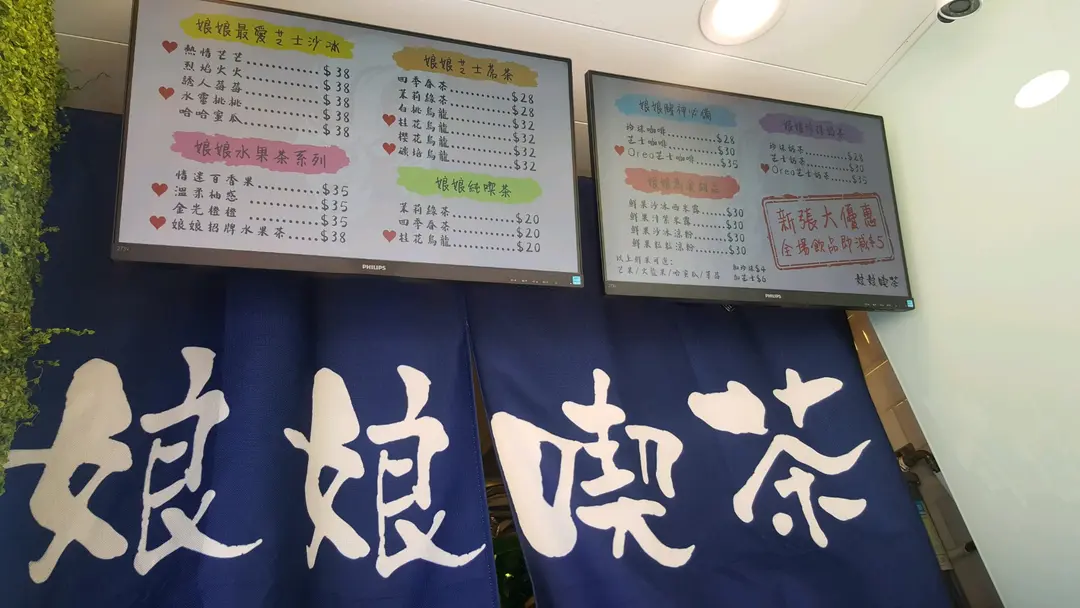 娘娘最愛芝士沙冰
熱情芒芒 $38
烈焰火火 $38
誘人莓莓 $38
水蜜桃桃 $38
哈哈蜜瓜 $38
娘娘水果茶系列
情迷百香果 $35
溫柔柚惑 $35
金光橙橙 $35
娘娘招牌水果茶 $38
娘娘芝士蓋茶
四季春茶 $28
茉莉綠茶 $28
白桃烏龍 $32
桂花烏龍 $32
櫻花烏龍 $32
碳焙烏龍 $32
娘娘純喫茶
茉莉綠茶 $20
四季春茶 $20
桂花烏龍 $20
PHILIPS
娘娘醒神必備
珍珠咖啡 $28
芝士咖啡 $30
Oreo芝士咖啡 $35
娘娘
奶茶
珍珠奶茶 $28
芝士奶茶 $30
Oreo芝士奶茶 $35
娘娘鮮果甜品
鮮果沙冰西米露 $30
鮮果汁紫米露 $30
鮮果沙冰涼粉 $30
鮮果粒粒涼粉 $30
以上鮮果可選:
芒果/火龍果/哈蜜瓜/草莓
加珍珠$4
加芝士$6
新張大優惠
全場飲品即減$5
娘娘喫茶
PHILIPS
娘娘喫茶